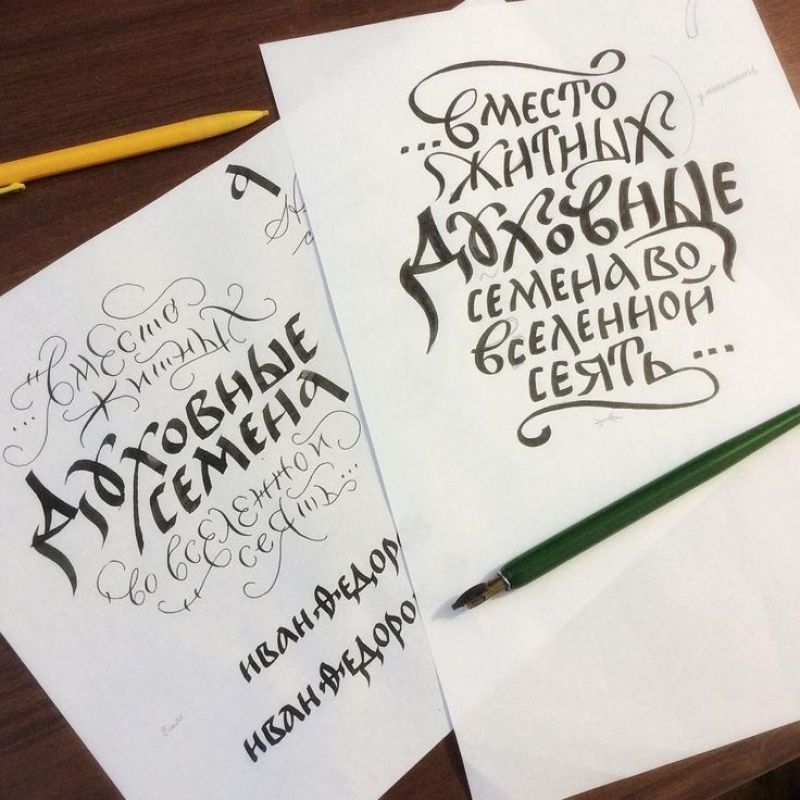 ...вместо
житных
духовные
семена во
вселенной
сеять...
я
...вместо
житных
духовные
семена
во вселенной
сеять...
иван федоро
иван федоро